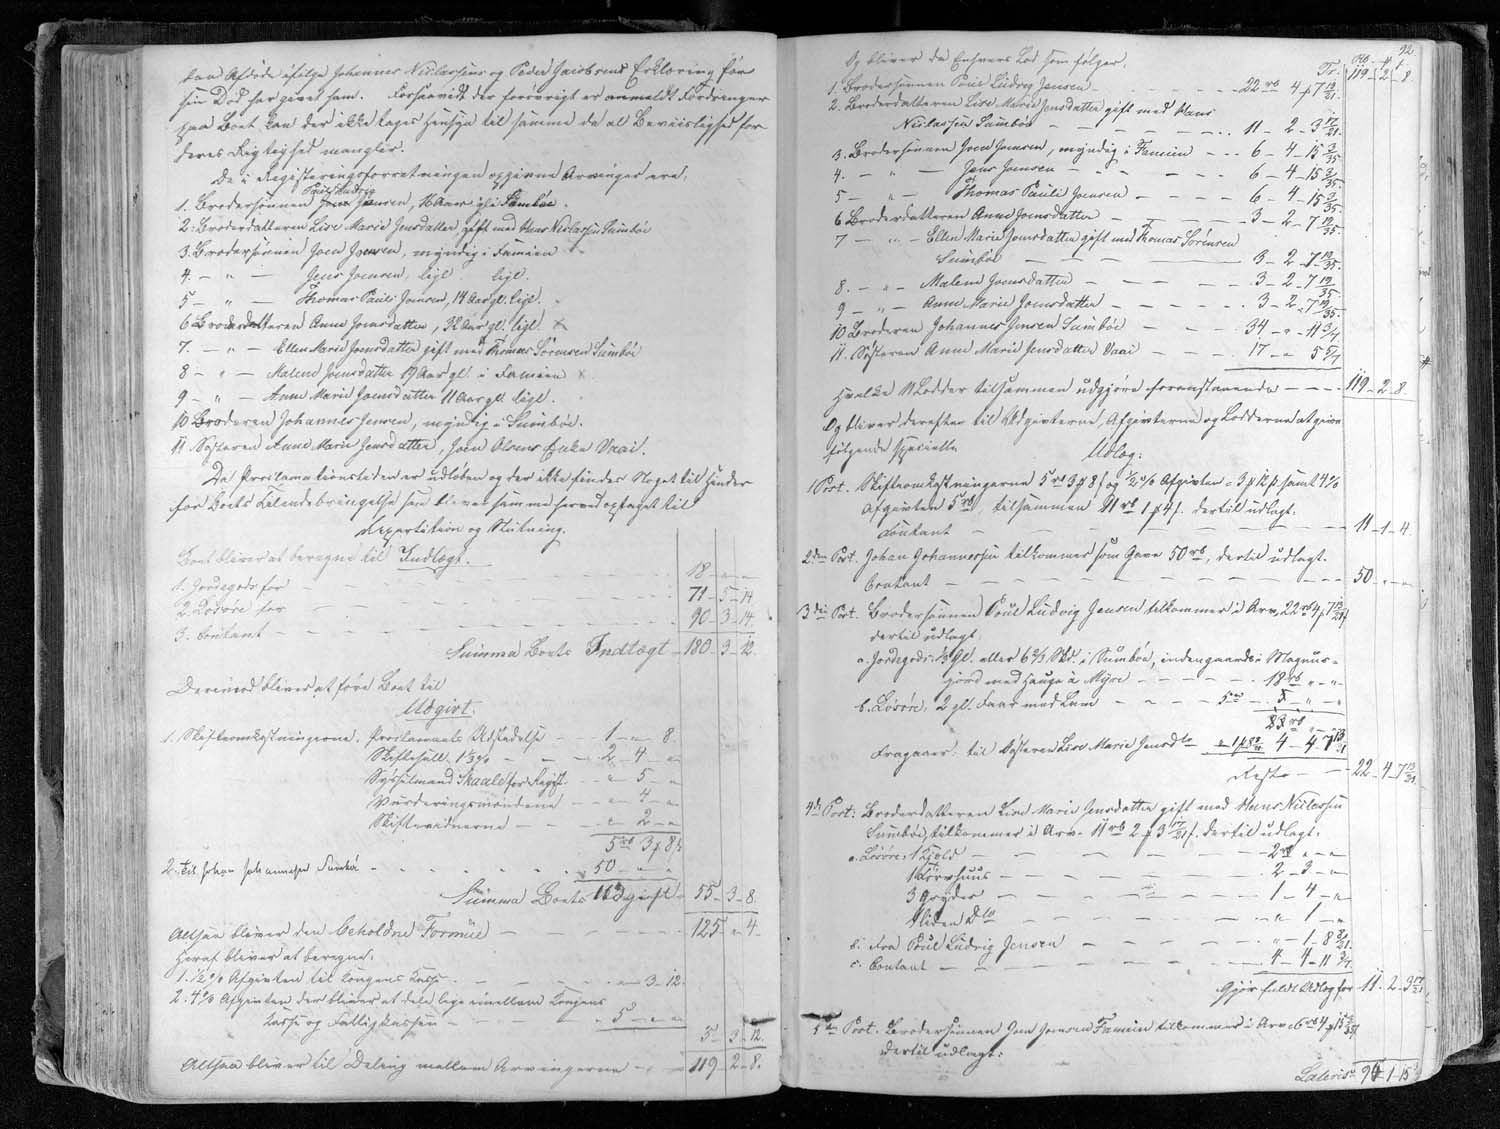 kan Afdöde ifölge Johannes Niclassens og Peder Jacobsens Erklæring før
sin Död har givet ham. Forsaavidt der forövrigt er anmeldt Fordringer
paa Boet kan der ikke tages Hensyn til samme da al Beviislighed for
deres Rigtighed mangler.
De i Registeringsforretningen opgivne Arvinger ere,
Poul Ludvig
1. Brodersönnen Jensen, 16 Aar i Sumböe.
2. Broderdatteren Lise Marie Jensdatter, gift med Hans Niclassen Sumböe
3. Brodersönnen Joen Joensen, myndig i Famien
4. — " — Jens Joensen, ligl. ligl.
5 — " — Thomas Pauli Joensen, 14 Aar gl. ligl.
6 Broderdatteren Anne Joensdatter, 32 Aar gl. ligl.
7. — " — Ellen Marie Joensdatter gift med Thomas Sörensen Sumböe
8 — " — Malene Joensdatter 19 Aar gl. i Famien
9 — " — Anne Marie Joensdatter 11 Aar gl. ligl.
10 Broderen Johannes Jensen, myndig i Sumböe.
11 Sösteren Anne Marie Jensdatter, Joen Olsens Enke Vaai.
Da Proclamationstiden er udloben og der ikke findes Noget til Hinder
for Boets Tilendebringelse saa blev samme herved optaget til
Repartition og Slutning.
Boet bliver at beregne til Indtægt.
1. Jordegods for — 18 — " — "
2. Lösöre for — 71 — 5 — 14
3. Contant — 90 — 3 — 14.
Summa Boets Indtægt — 180 — 3 — 12.
Derimod bliver at före Boet til
Udgivt.
1. Skifteomkostningerne. Proclamaets Udstedelse — 1 — " — 8.
Skiftesall. 1⅓% — 2 — 4 — "
Sysselmand Skaale for Regist. — " — 5 — "
Vurderingsmændene — " — 4 — "
Skiftevidnerne — " — 2 — "
5 rb 3 ß 8
2. til Johan Johannesen Sumbö — 50 — " — "
Summa Boets Udgift — 55 — 3 — 8.
Altsaa bliver den beholdne Formue — 125 — " — 4.
Heraf bliver at beregne.
1. ½% Afgivten til Kongens Kasse — " — 3 — 12.
2. 4% Afgivten der bliver at dele lige imellem Kongens
Kasse og Fattigkassen — 5 — " — "
5 — 3 — 12.
Altsaa bliver til Deling mellem Arvingerne — 119 — 2 — 8.
92
Og bliver da Enhvers Lod som følger.
Tr. 119 — 2 — 8.
1. Brodersönnen Poul Ludvig Jensen — 22 rb 4 ß 7 13/21
2. Broderdatteren Lise Marie Jensdatter gift med Hans
Niclassen Sumböe — 11 — 2 — 3 17/21
3. Brodersönnen Joen Joensen, myndig i Famien — 6 — 4 — 15 3/35
4. — " — Jens Joensen — 6 — 4 — 15 3/35
5 — " — Thomas Pauli Joensen — 6 — 4 — 15 3/35
6 Broderdatteren Anne Joensdatter — 3 — 2 — 7 19/35
7 — " — Ellen Marie Joensdatter gift med Thomas Sörensen
Sumböe — 3 — 2 — 7 19/35
8. — " — Malene Joensdatter — 3 — 2 — 7 19/35
9 — " — Anne Marie Joensdatter — 3 — 2 — 7 19/35
10 Broderen Johannes Jensen Sumböe — 34 — " — 11 3/7
11. Sösteren Anne Marie Jensdatter Vaai — 17 — " — 5 5/7
Hvilke 11 Lodder tilsammen udgjöre foranstaaende — 119 — 2 — 8.
Og bliver derefter til Udgivterne, Afgivterne og Lodderne at give
fölgende specielle
Udlæg:
1 Post. Skifteomkostningerne 5 rb 3 ß 8 og ½% Afgivten " 3 ß 12 samt 4%
Afgivten 5 rb, tilsammen 11 rb 1 ß 4. dertil udlagt.
Contant — 11 — 1 — 4.
2den Post. Johan Johannessen tilkommer som Gave 50 rb, dertil udlagt.
Contant — 50 — " — "
3die Post. Brodersönnen Poul Ludvig Jensen tilkommer i Arv, 22 rb 4 ß 7 13/21
dertil udlagt.
a. Jordegods: ⅓ Gl. eller 6⅔ Skd. i Sumböe, indengaards i Magnus-
jord med Hauge á Myre — 18 rb " — "
b. Lösöre: 2 gl. Faar med Lam — 5 — " — "
23 rb " — "
Fragaaer: til Sösteren Lise Marie Jensd
Rest — 22 — 4 — 7 13/21
4de Post: Broderdatteren Lise Marie Jensdatter gift med Hans Niclassen
Sumböe, tilkommer i Arv. 11 rb 2 ß 3 17/21. dertil udlagt.
a. Lösöre: 1 Kjold — 2 rb " — "
1 Törvhuus — 2 — 3 — "
3 Gryder — 1 — 4 — "
1 liden Dto — " — 1 — "
b. fra Poul Ludvig Jensen — " — 1 — 8 8/21
c. Contant — 4 — 4 — 11 3/7
Gjör fuldt Udlæg for 11 — 2 — 3 17/21
5te Post. Brodersönnen Joen Joensen Famien tilkommer i Arv 6 rb 4 ß 15 3/35
dertil udlagt:
Lateris